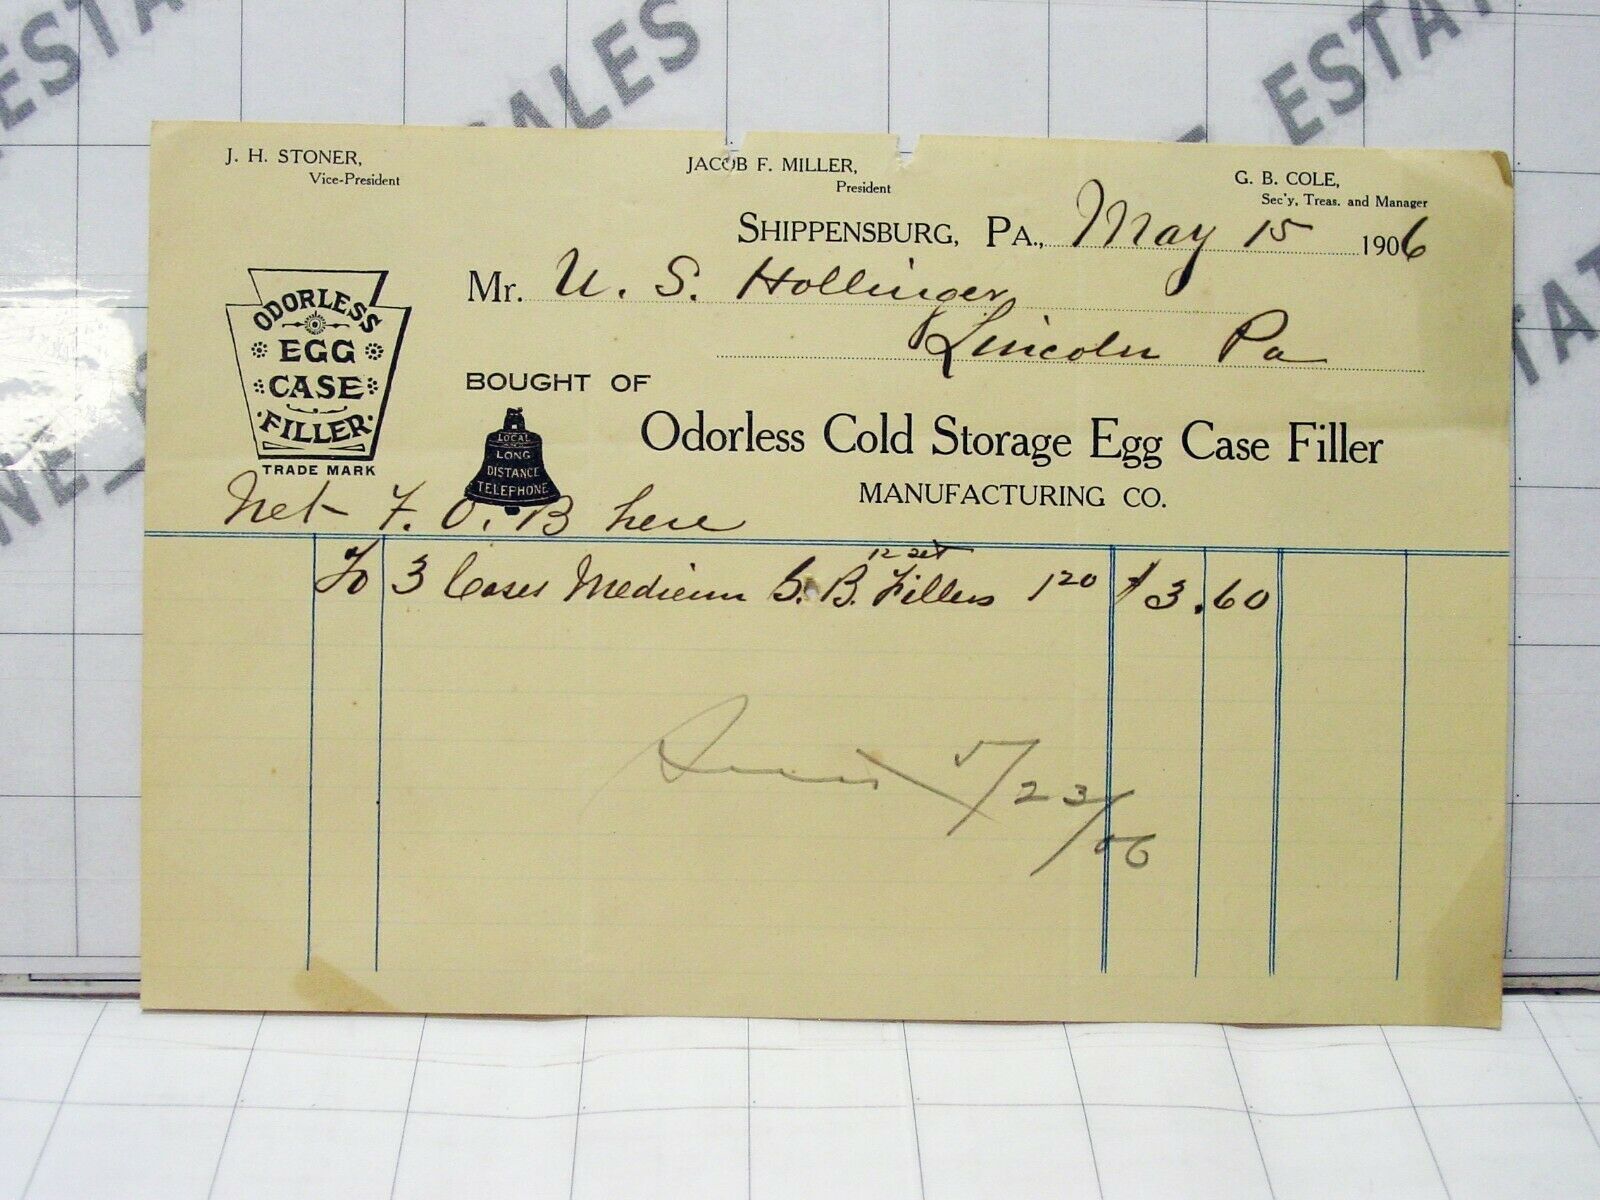 J. H. STONER,
Vice-President
JACOB F. MILLER,
President
G. B. COLE,
Sec'y, Treas. and Manager
SHIPPENSBURG, PA., May 15 1906
Mr. U. S. Hollinger
Lincoln Pa
ODORLESS
EGG
CASE
FILLER
TRADE MARK
BOUGHT OF
LOCAL
LONG
DISTANCE
TELEPHONE
Odorless Cold Storage Egg Case Filler
MANUFACTURING CO.
Net F. O. B here
12 set
To 3 Cases Medium S. B. Fillers 1 20 $3.60
5/23/06
ESTA
SALES
ESTAT